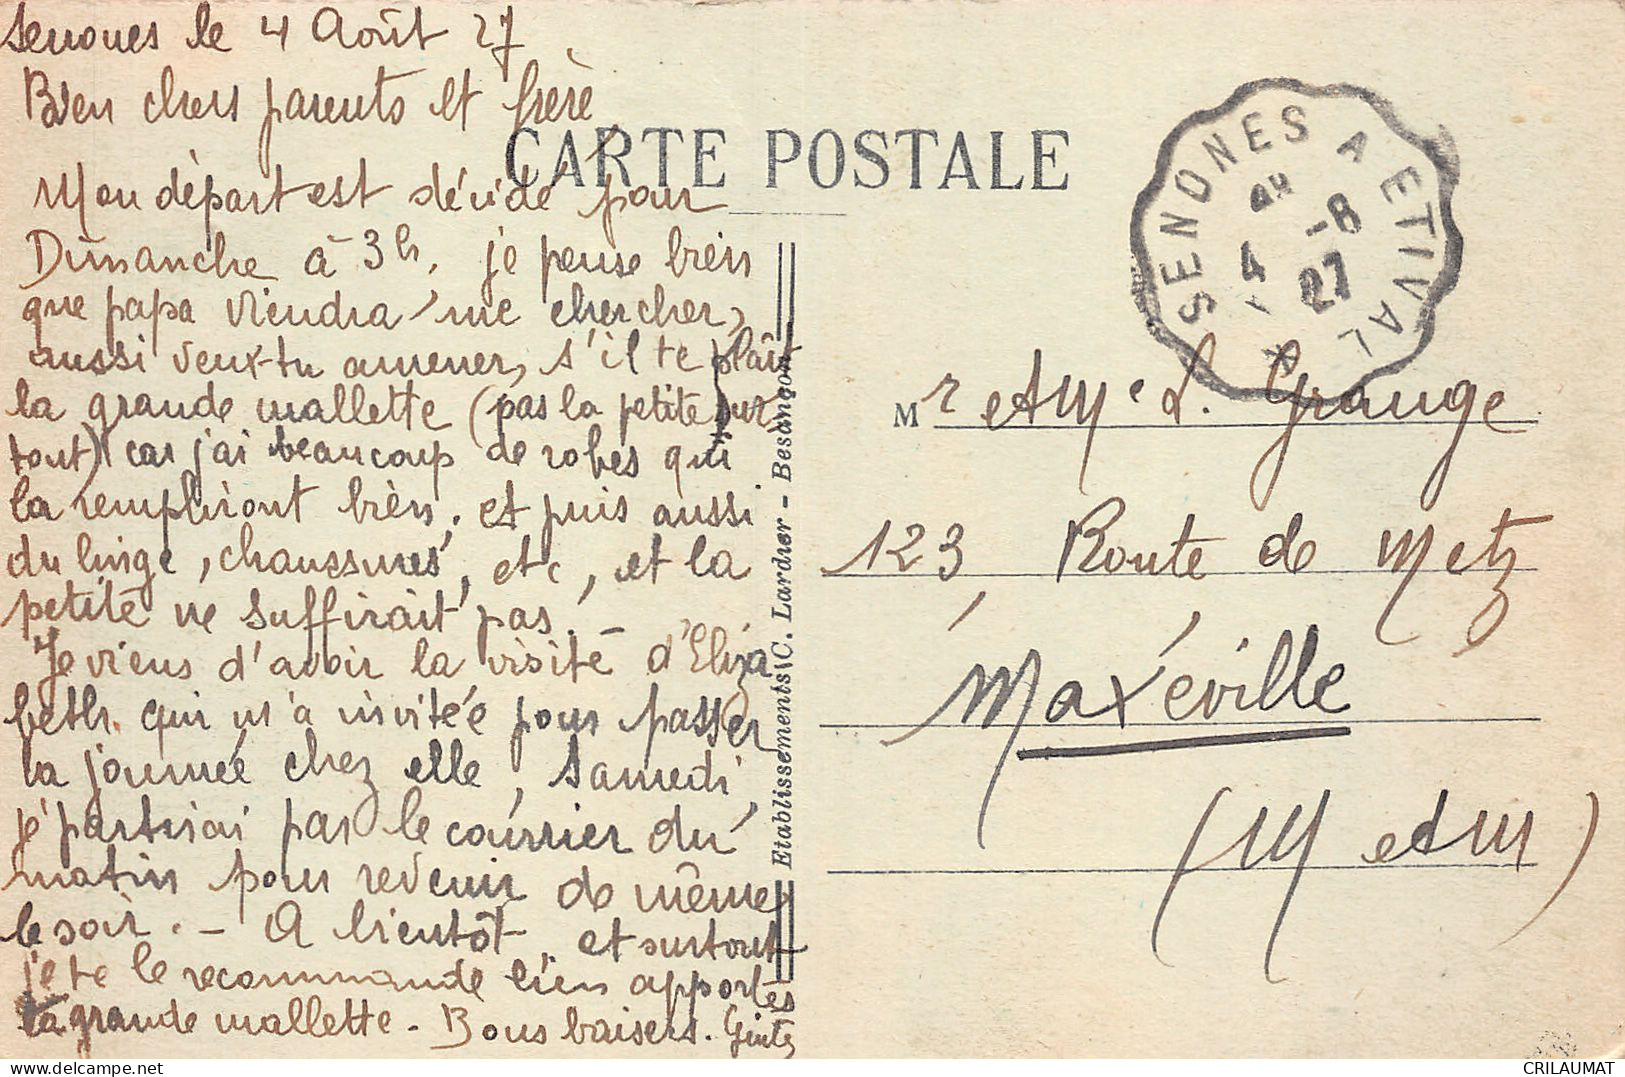 Senones le 4 Août 27
Bien chers parents et frère
CARTE POSTALE
Mon départ est décidé pour
Dimanche à 3h, je pense bien
que papa viendra me chercher,
aussi veux-tu amener, s'il te plaît
la grande mallette (pas la petite sur
tout) car j'ai beaucoup de robes qui
la rempliront bien, et puis aussi
du linge, chaussures, etc, et la
petite ne suffirait pas. –
Je viens d'avoir la visite d'Eliza
beth. qui m'a invitée pour passer
la journée chez elle, Samedi,
je partirai par le courrier du
matin pour revenir de même
le soir. – A bientôt, et surtout
je te le recommande bien apportes
la grande mallette. Bons baisers.
Etablissements C. Lardier - Besançon
SENONES A ETIVAL
4 -8
27
Mr et Me L. Grange
123, Route de Metz
Maxéville
(M et M)
CRILAUMAT